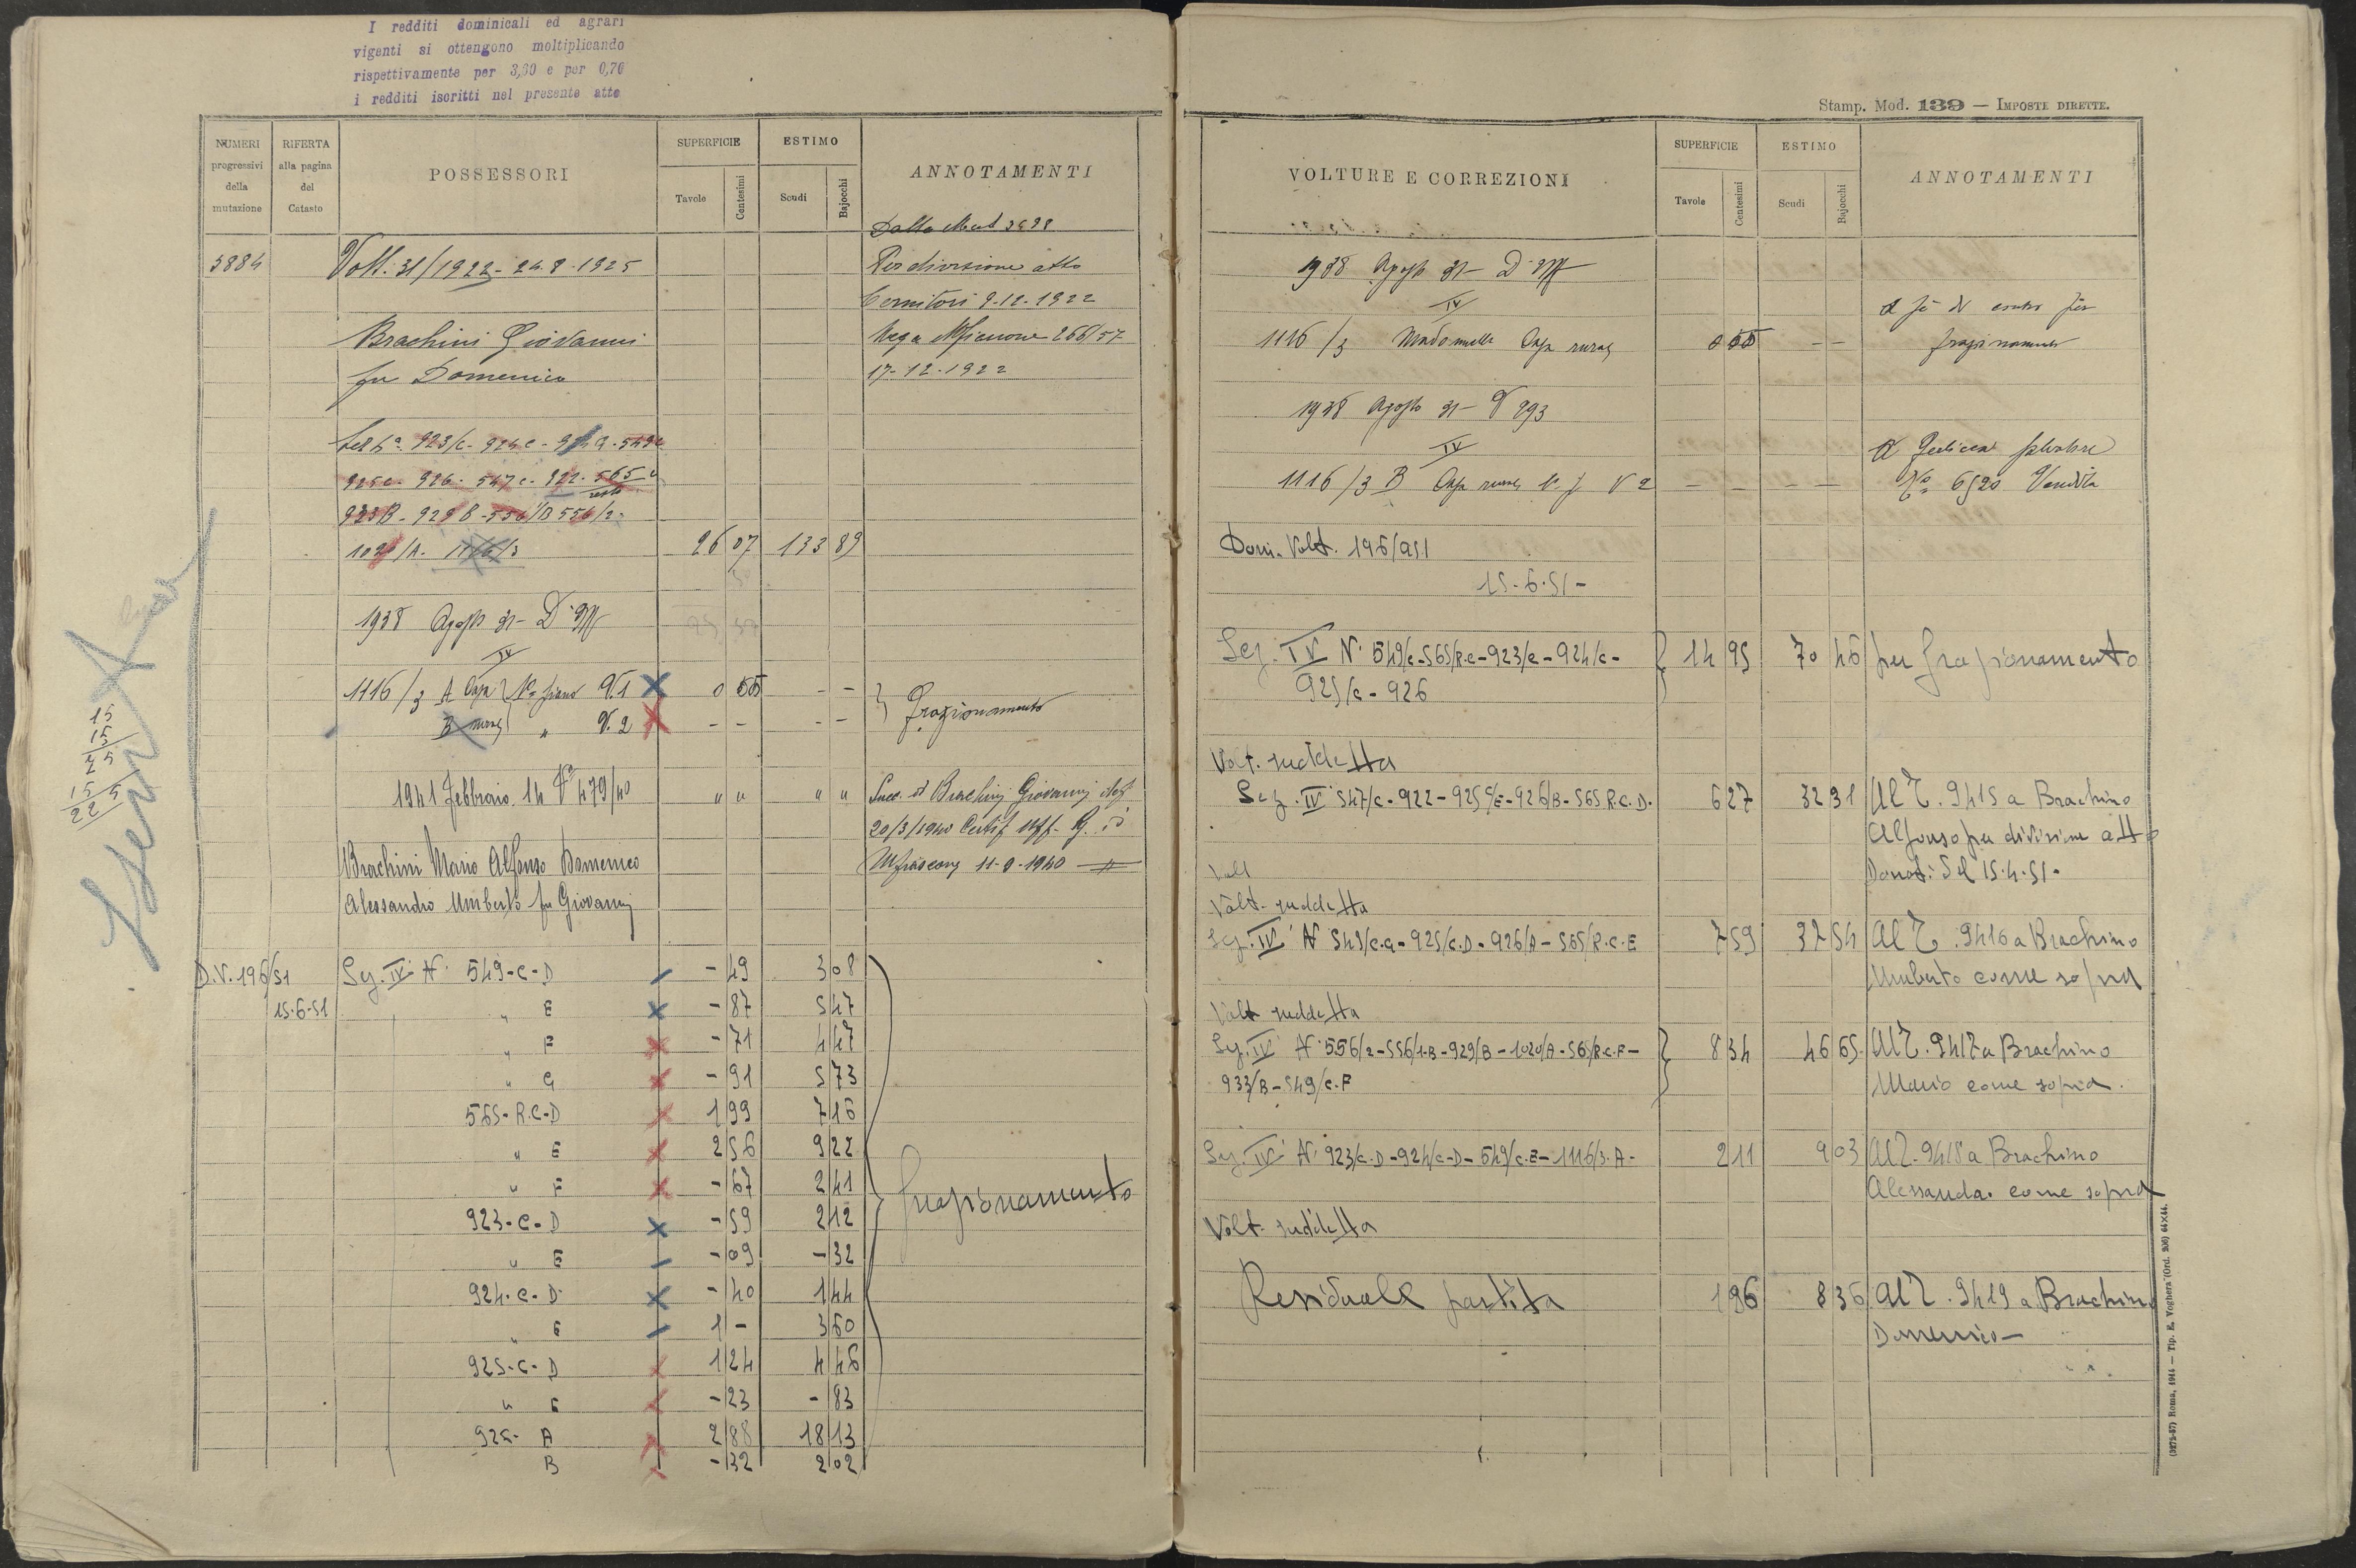 I redditi dominicali ed agrari
vigenti si ottengono moltiplicando
rispettivamente per 3,60 e per 0,70
i redditi iscritti nel presente atto
NUMERI progressivi della mutazione
RIFERTA alla pagina del Catasto
POSSESSORI
SUPERFICIE
Tavole Centesimi
ESTIMO
Scudi Bajocchi
ANNOTAMENTI
Dalla Mut
3884 Volt. 31/1922 - 24.8.1925 Per divisione atto
9-12-1922
Brachini Giovanni 266/57
fu Domenico 17-12-1922
925c. 926. 547c. 922. 565
resto
1020/A. 1116/3 26 07 133 89
1938 Agosto 31 -
IV
1116/3 A Casa 1° piano V.1 0 55 - -
B rurale " V.2 - - - - frazionamento
1941 Febbraio 14 V 479/40 " " " " Succ. di Brachini Giovanni
20/3/1940 Certif.
Brachini Mario Alfonso Domenico 11-9-1940
Alessandro Umberto fu Giovanni
D.V. 196/51 Sez. IV N. 549-C-D - 49 3 08
15-6-51 " E - 87 5 47
" F - 71 4 47
" G - 91 5 73
565-R.C-D 1 99 7 16
" E 2 56 9 22
" F - 67 2 41
frazionamento
923-C-D - 59 2 12
" E - 09 - 32
924-C-D 40 1 44
" E 1 - 3 60
925-C-D 1 24 4 46
" E - 23 - 83
926- A 2 88 18 13
B - 32 2 02
15
15
15
225
Stamp. Mod. 139 — IMPOSTE DIRETTE.
VOLTURE E CORREZIONI
SUPERFICIE
Tavole Centesimi
ESTIMO
Scudi Bajocchi
ANNOTAMENTI
1938 Agosto 31 -
IV
1116/3 Casa rurale 0 55 - - frazionamento
1938 Agosto 31 - V 893
IV
1116/3 B Casa rurale V 2 - - - - 6520 Vendita
Dom. Volt. 196/951
15-6-51 -
Sez. IV N. 549/c-565/R.c-923/c-924/c- 14 95 70 46 per frazionamento
925/c-926
Volt. suddetta
Sez. IV 547/c-922-925/c/E-926/B-565 R.C.D. 6 27 32 31 Al T. 9415 a Brachino
Alfonso per divisione atto
Donati del 15.4.51.
Volt
Volt. suddetta
Sez. IV N 549/c.G-925/c.D-926/A-565/R.C.E 7 59 32 54 Al T. 9416 a Brachino
Umberto come sopra
Volt suddetta
Sez. IV N. 556/2-556/1-B-929/B-1020/A-565/R.C.F- 8 34 46 65 Al T. 9417 a Brachino
933/B-549/c.F Mario come sopra.
Sez. IV N. 923/c.D-924/c-D-549/c.E-1116/3.A- 2 11 9 03 Al T. 9418 a Brachino
Alessandro come sopra
Volt. suddetta
Residuale partita 1 96 8 36 Al T. 9419 a Brachino
Domenico -
(3275-57) Roma, 1914 — Tip. E. Voghera (Ord. 206) 64×44.